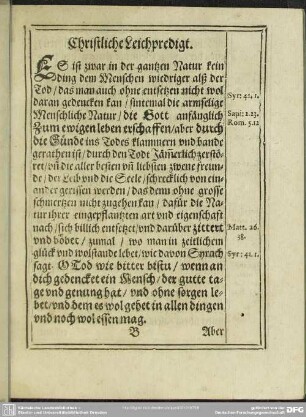 Christliche Leichpredigt.
ES ist zwar in der gantzen Natur kein
ding dem Menschen wiedriger alß der
Tod / das man auch ohne entsetzen nicht wol
daran gedencken kan / sintemal die armselige
Menschliche Natur / die Gott anfänglich
Zum ewigen leben erschaffen / aber durch
die Sünde ins Todes klammern vnd bande
gerathen ist / durch den Todt Jämerlich zerstö-
ret / vñ die aller besten vñ liebsten zwene freun-
de / der Leib vnd die Seele / schrecklich von ein-
ander gerissen werden / das denn ohne grosse
schmertzen nicht zugehen kan / dafür die Na-
tur ihrer eingepflantzten art vnd eigenschafft
nach / sich billich entsetzt / vnd darüber zittert
vnd böbet / zumal / wo man in zeitlichem
glück vnd wolstande lebet / wie davon Syrach
sagt. O Tod wie bitter bistu / wenn an
dich gedencket ein Mensch / der gutte ta-
ge vnd genung hat / vnd ohne sorgen le-
bet / vnd dem es wol gehet in allen dingen
vnd noch wol essen mag.
B Aber
Syr: 41, 1.
Sapi: 2.23.
Rom. 5.12
Matt. 26.
38.
Syr: 41. 1.